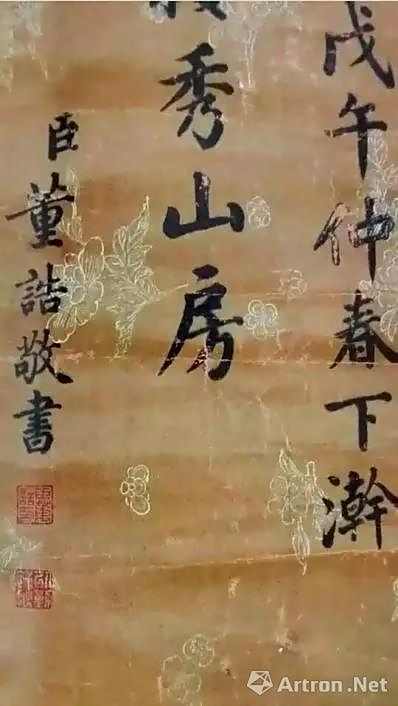 戊午仲春下澣
秀山房
臣董誥敬書
Artron.Net